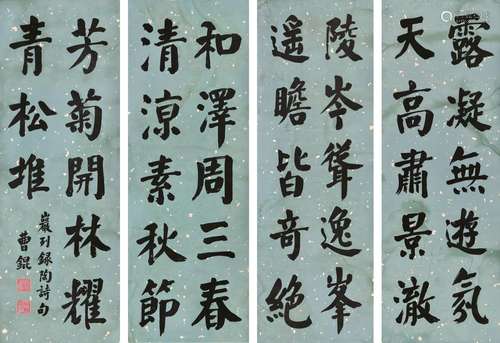 露凝無遊氛
天高肅景澈
陵岑聳逸峯
遥瞻皆竒絕
和澤周三春
清涼素秋節
芳菊開林耀
青松堆
巖列録陶詩句
曹錕